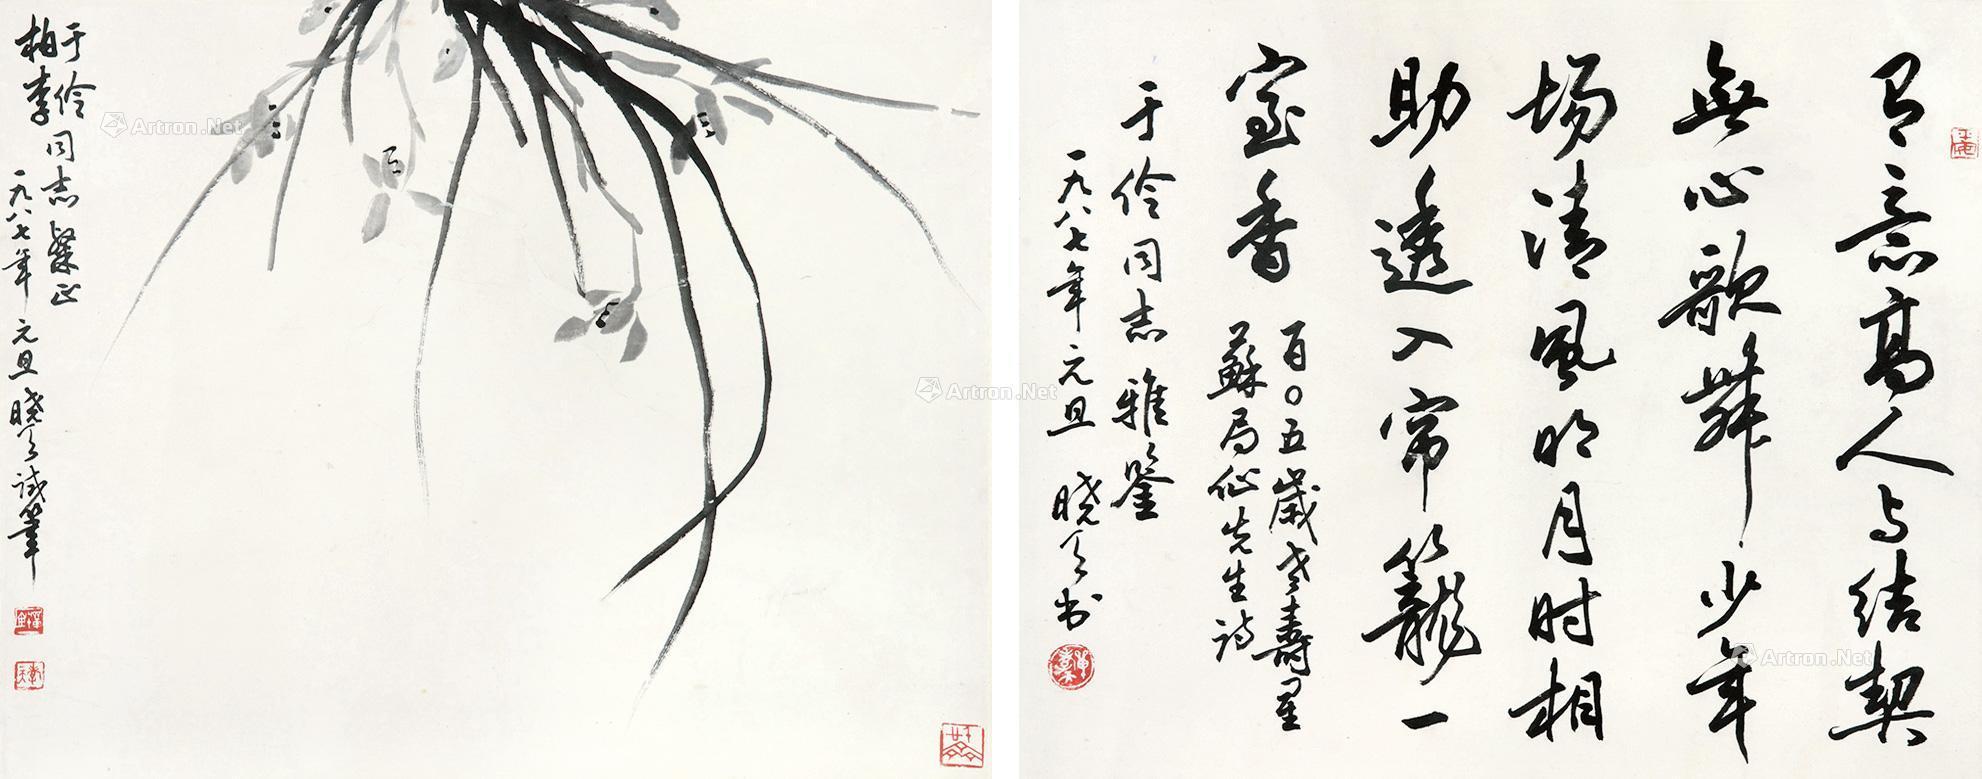 于伶
柏李同志粲正
一九八七年元旦晓天试笔
有意高人与结契
無心歌舞少年
场清风明月时相
助透入帘籠一
室香
百〇五歲老壽星
蘇局仙先生诗
于伶同志雅鉴
一九八七年元旦晓天书
Artron.Net
Artron.Net
Artron.Net